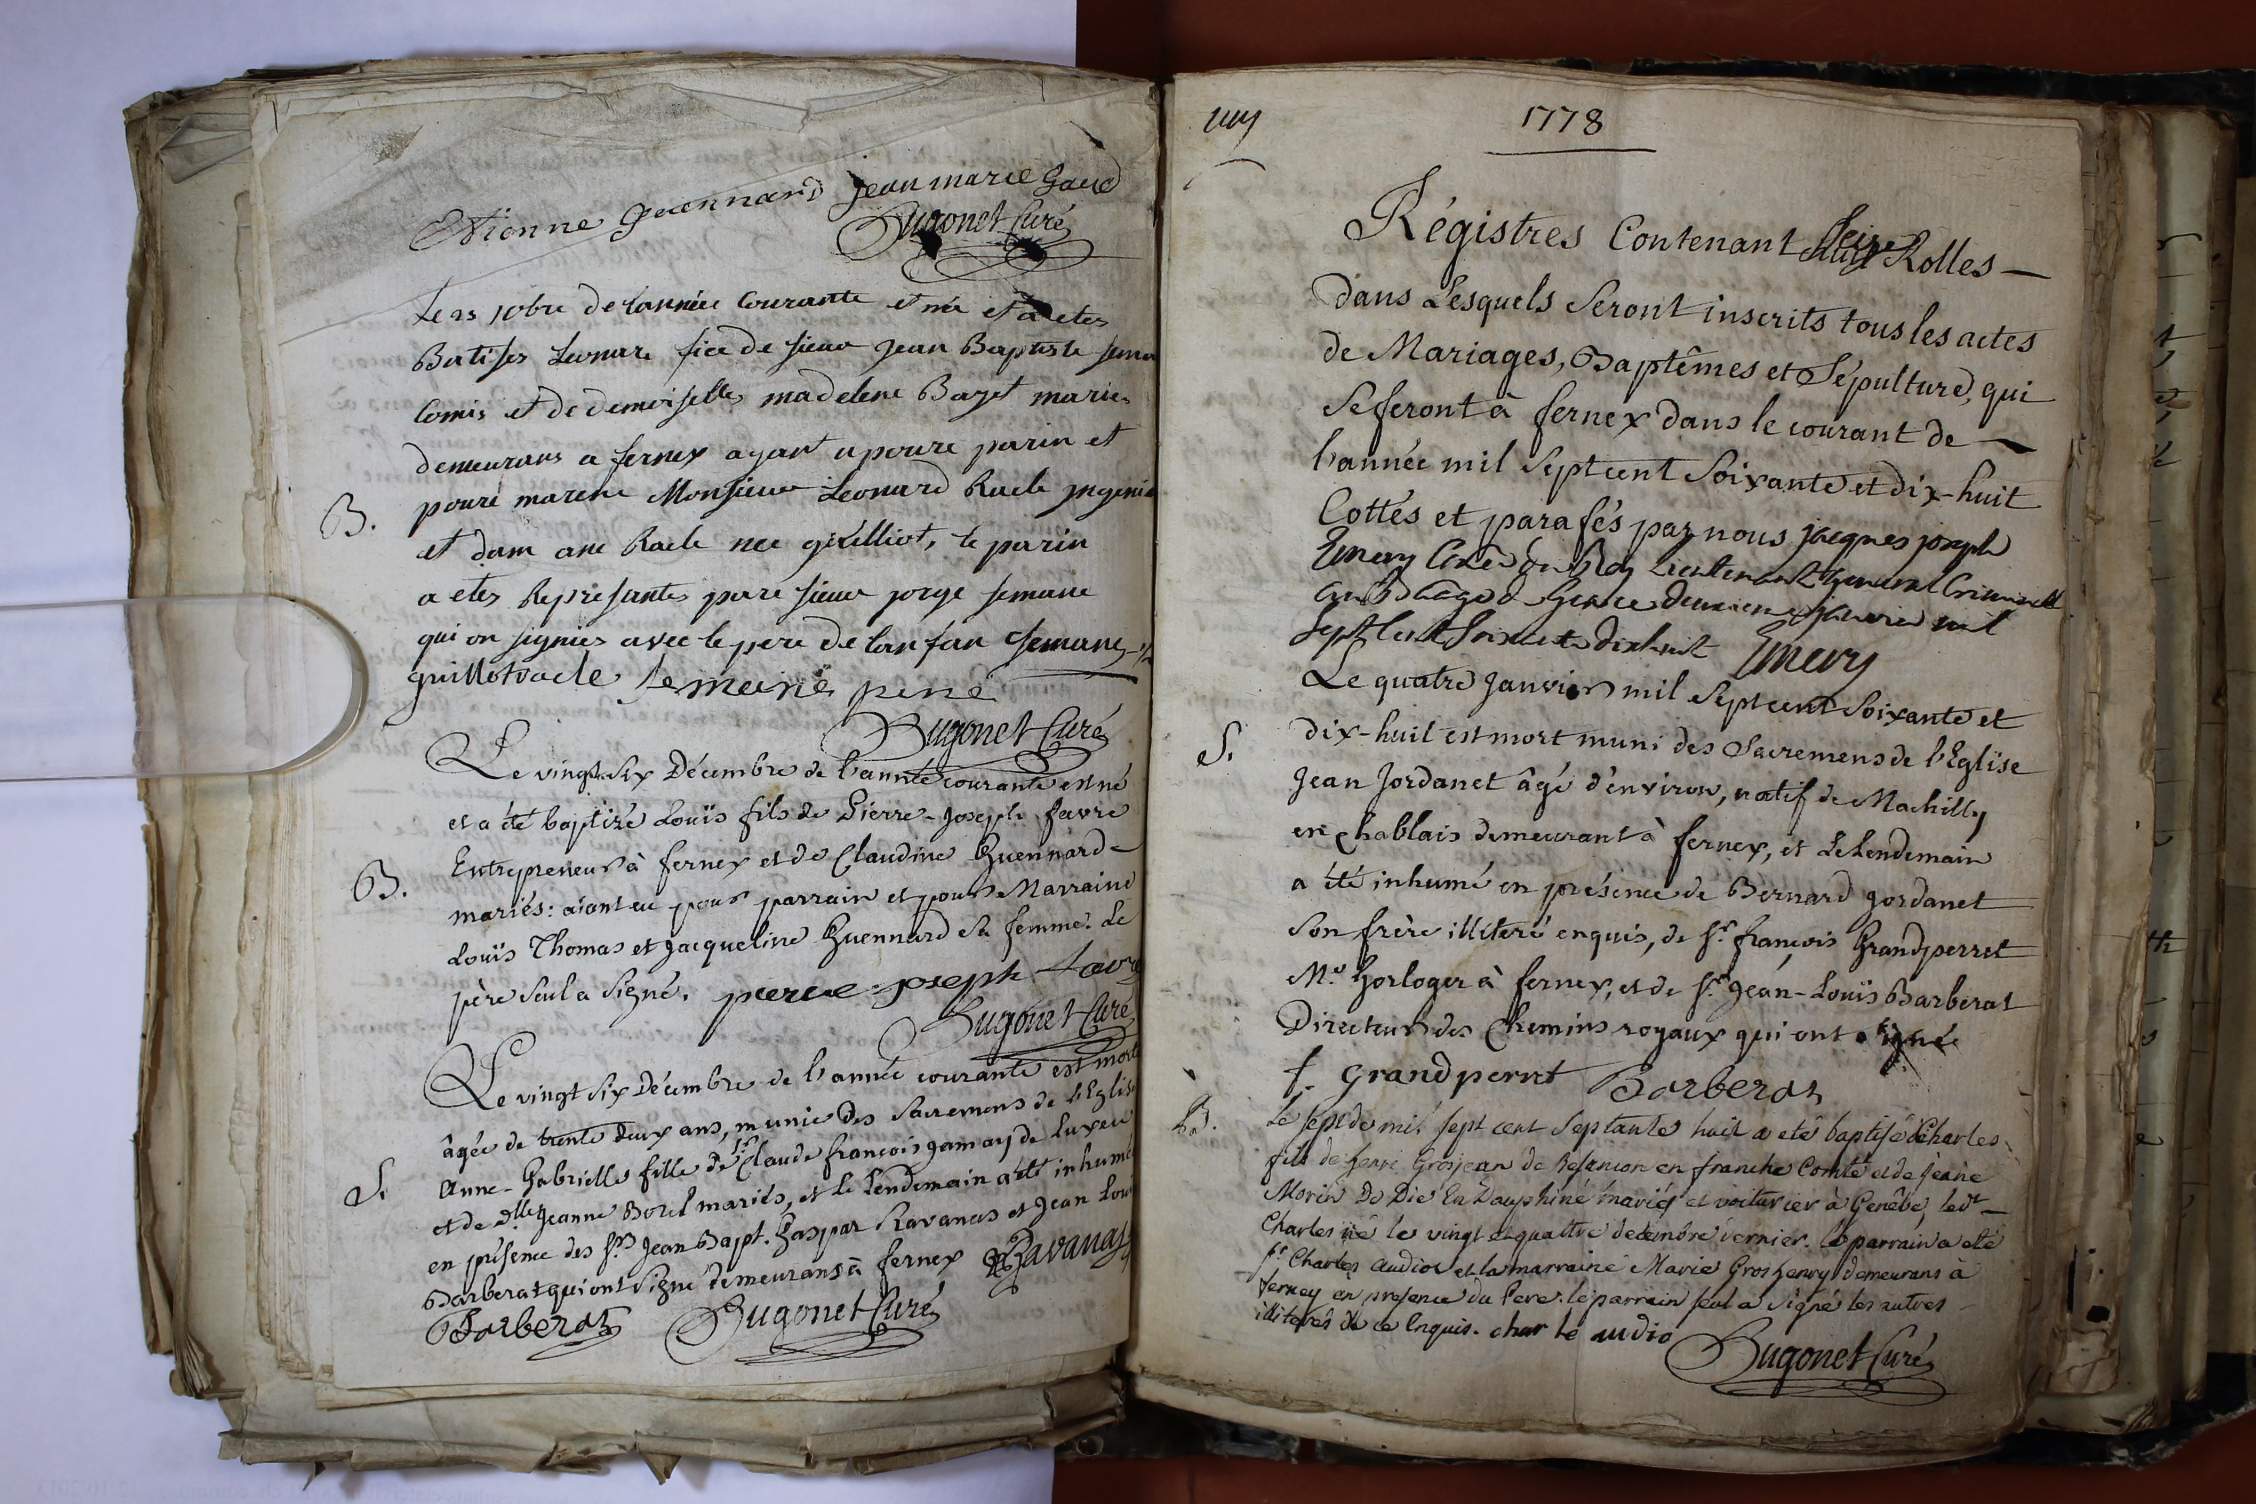 Etienne guennard jean marie Gaud
Hugonet Curé
Le 25 xbre de lannée Courante et né et a etes
Batises Leonare fice de sieur jean Baptiste
Comis et de demoiselles madelene Bazet maries
demeurans a fernex ayant u poure parin et
B. poure marene Monsieur Leonard Racle
et dam ane Racle nee, le parin
a etes Representes pare sieur jorge semane
qui on signies avec le pere de lanfan semane
guillot racle
Hugonet Curé
Le vingt-six Décembre de l'année courante est né
et a été baptizé Louïs fils de Pierre-Joseph favre
Entrepreneur à fernex et de Claudine Guennard
B. mariés: aïant eu pour parrain et pour Marraine
Louïs Thomas et Jacqueline Guennard sa femme. Le
père seul a signé. pierre joseph favre
Hugonet Curé
Le vingt six Décembre de l'année courante est morte
âgée de trente deux ans, munie des Sacremens de l'Eglise
S. Anne-Gabrielle fille de Sr. Claude françois gamay de Luxeu
et de Dlle Jeanne Borel mariés, et le Lendemain a été inhumée
en présence des Srs Jean Bapt. Gaspar Ravanas et Jean Louis
Barberat qui ont signé demeurans à fernex Ravanas
Barberat Hugonet Curé
1778
Régistres Contenant Seize Rolles
dans Lesquels Seront inscrits tous les actes
de Mariages, Baptêmes et Sépulture, qui
Se feront à fernex dans le courant de
l'année mil Sept cent Soixante et dix-huit
Cottés et parafés par nous jacques joseph
Emery Coner du Roy Lieutenant General Criminel
au Bailliage de Gex ce deuxieme janvier mil
Sept Cent soixante dixhuit Emery
Le quatre Janvier mil Sept cent Soixante et
S. dix-huit est mort muni des Sacremens de l'Eglise
Jean Jordanet âgé d'environ, natif de Machilly
en Chablais demeurant à fernex, et Le Lendemain
a été inhumé en présence de Bernard Jordanet
Son frère illiteré enquis, de Sr. françois Grandperret
Me. horloger à fernex, et de Sr. Jean-Louïs Barberat
Directeur des Chemins royaux qui ont signé
f. grandperret Barberat
B. Le sept de mil sept cent septante huit a eté baptisé Charles
fils de henri Grosjean de Besançon en franche Comté et de jeane
Morin de Die En Dauphiné mariés et voiturier à Genêve, ledt
Charles né le vingt et quattre decembre dernier. le parrain a eté
Sr Charles audior et la marraine Marie Groshenry demeurans à
ferney en presence du Pere. le parrain seul a signé les autres
illiterés de ce Enquis. char le audio
Hugonet Curé